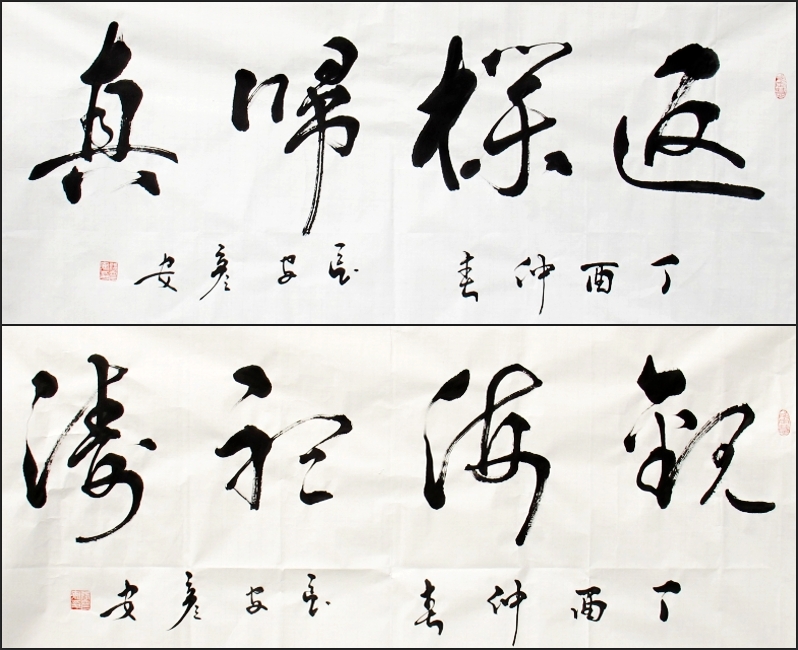 返樸歸真
丁酉仲春 長安彥安
觀海聽濤
丁酉仲春 長安彥安